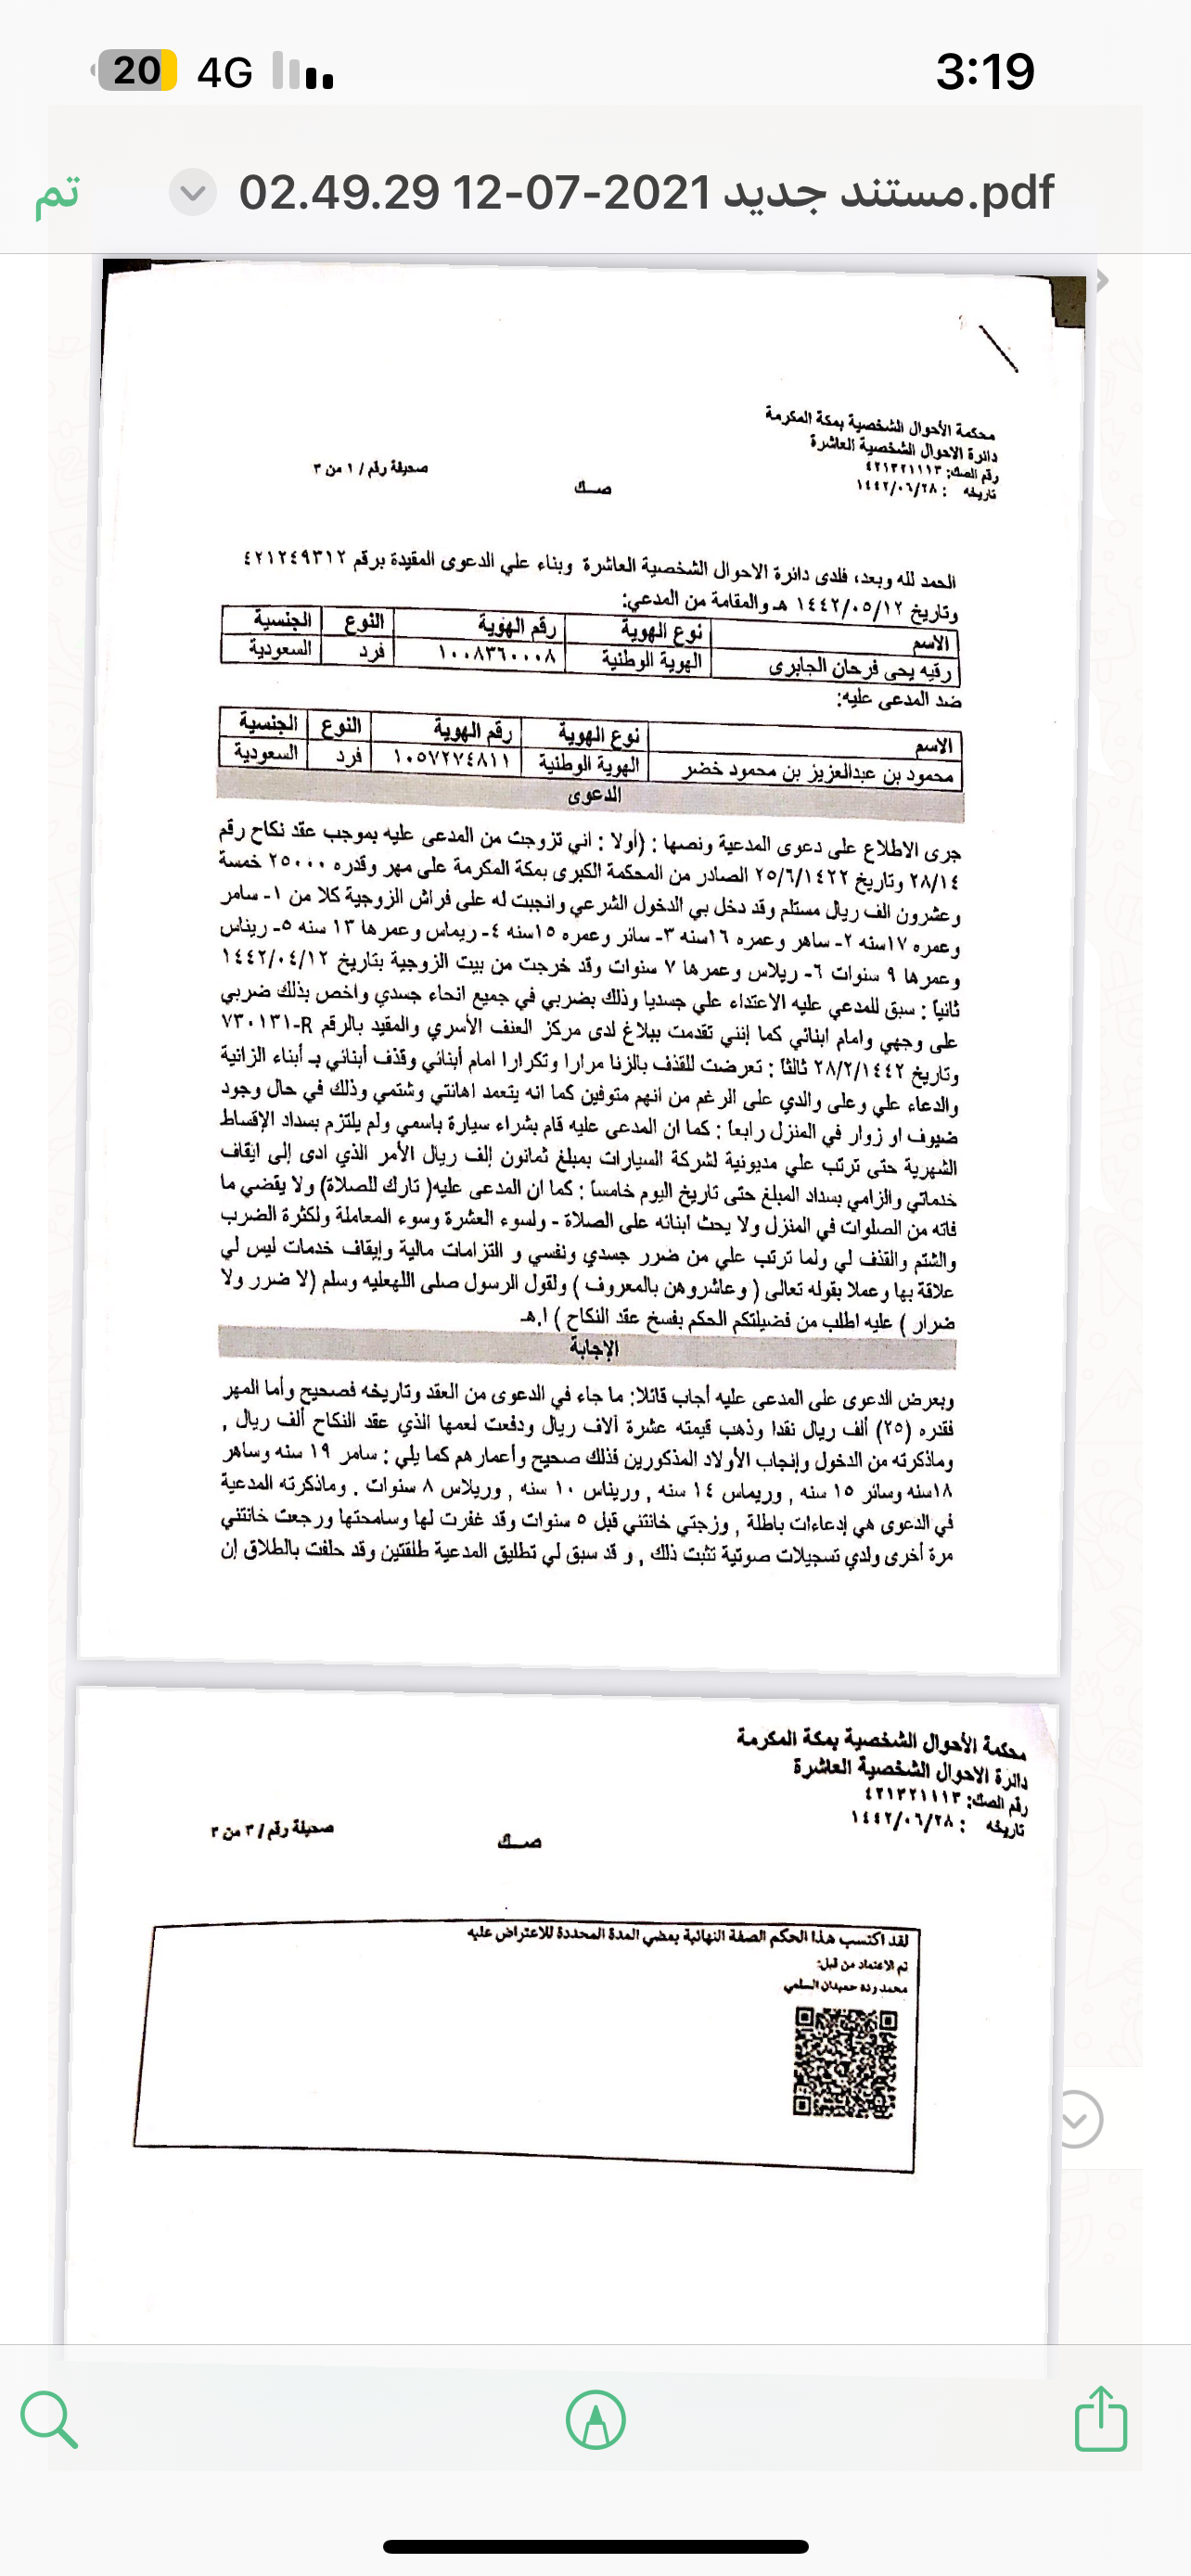 3:19
4G
20
مستند جديد 2021-07-12 02.49.29.pdf
تم
محكمة الأحوال الشخصية بمكة المكرمة
دائرة الاحوال الشخصية العاشرة
رقم الصك: ٤٢١٣٢١١١٣
تاريخه : ١٤٤٢/٠٦/٢٨
صـــك
صحيفة رقم / ١ من ٣
الحمد لله وبعد، فلدى دائرة الاحوال الشخصية العاشرة وبناء علي الدعوى المقيدة برقم ٤٢١٢٤٩٣١٢
وتاريخ ١٤٤٢/٠٥/١٢ هـ والمقامة من المدعي:
الاسم نوع الهوية رقم الهوية النوع الجنسية
رقيه يحى فرحان الجابرى الهوية الوطنية ١٠٠٨٣٦٠٠٠٨ فرد السعودية
ضد المدعى عليه:
الاسم نوع الهوية رقم الهوية النوع الجنسية
محمود بن عبدالعزيز بن محمود خضر الهوية الوطنية ١٠٥٧٢٧٤٨١١ فرد السعودية
الدعوى
جرى الاطلاع على دعوى المدعية ونصها : (أولا : اني تزوجت من المدعى عليه بموجب عقد نكاح رقم
٢٨/١٤ وتاريخ ٢٥/٦/١٤٢٢ الصادر من المحكمة الكبرى بمكة المكرمة على مهر وقدره ٢٥٠٠٠ خمسة
وعشرون الف ريال مستلم وقد دخل بي الدخول الشرعي وانجبت له على فراش الزوجية كلا من ١- سامر
وعمره ١٧سنه ٢- ساهر وعمره ١٦سنه ٣- سائر وعمره ١٥سنه ٤- ريماس وعمرها ١٣ سنه ٥- ريناس
وعمرها ٩ سنوات ٦- ريلاس وعمرها ٧ سنوات وقد خرجت من بيت الزوجية بتاريخ ١٤٤٢/٠٤/١٢
ثانياً : سبق للمدعي عليه الاعتداء علي جسديا وذلك بضربي في جميع انحاء جسدي واخص بذلك ضربي
على وجهي وامام ابنائي كما إنني تقدمت ببلاغ لدى مركز العنف الأسري والمقيد بالرقم R-٧٣٠١٣١
وتاريخ ٢٨/٢/١٤٤٢ ثالثاً : تعرضت للقذف بالزنا مرارا وتكرارا امام أبنائي وقذف أبنائي بـ أبناء الزانية
والدعاء علي وعلى والدي على الرغم من انهم متوفين كما انه يتعمد اهانتي وشتمي وذلك في حال وجود
ضيوف او زوار في المنزل رابعاً : كما ان المدعى عليه قام بشراء سيارة باسمي ولم يلتزم بسداد الإقساط
الشهرية حتى ترتب علي مديونية لشركة السيارات بمبلغ ثمانون إلف ريال الأمر الذي ادى إلى ايقاف
خدماتي والزامي بسداد المبلغ حتى تاريخ اليوم خامساً : كما ان المدعى عليه( تارك للصلاة) ولا يقضي ما
فاته من الصلوات في المنزل ولا يحث ابنائه على الصلاة - ولسوء العشرة وسوء المعاملة ولكثرة الضرب
والشتم والقذف لي ولما ترتب علي من ضرر جسدي ونفسي و التزامات مالية وإيقاف خدمات ليس لي
علاقة بها وعملا بقوله تعالى ( وعاشروهن بالمعروف ) ولقول الرسول صلى اللهعليه وسلم (لا ضرر ولا
ضرار ) عليه اطلب من فضيلتكم الحكم بفسخ عقد النكاح ) ا.هـ
الإجابة
وبعرض الدعوى على المدعى عليه أجاب قائلا: ما جاء في الدعوى من العقد وتاريخه فصحيح وأما المهر
فقدره (٢٥) ألف ريال نقدا وذهب قيمته عشرة آلاف ريال ودفعت لعمها الذي عقد النكاح ألف ريال ,
وماذكرته من الدخول وإنجاب الأولاد المذكورين فذلك صحيح وأعمارهم كما يلي : سامر ١٩ سنه وساهر
١٨سنه وسائر ١٥ سنه , وريماس ١٤ سنه , وريناس ١٠ سنه , وريلاس ٨ سنوات . وماذكرته المدعية
في الدعوى هي إدعاءات باطلة , وزجتي خانتني قبل ٥ سنوات وقد غفرت لها وسامحتها ورجعت خانتني
مرة أخرى ولدي تسجيلات صوتية تثبت ذلك , و قد سبق لي تطليق المدعية طلقتين وقد حلفت بالطلاق إن
محكمة الأحوال الشخصية بمكة المكرمة
دائرة الاحوال الشخصية العاشرة
رقم الصك: ٤٢١٣٢١١١٣
تاريخه : ١٤٤٢/٠٦/٢٨
صـــك
صحيفة رقم / ٣ من ٣
لقد اكتسب هذا الحكم الصفة النهائية بمضي المدة المحددة للاعتراض عليه
تم الاعتماد من قبل:
محمد رده حميدان السلمي